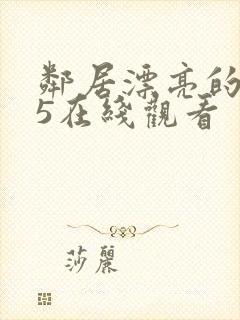 鄰居漂亮的
5在綫觀看
莎麗